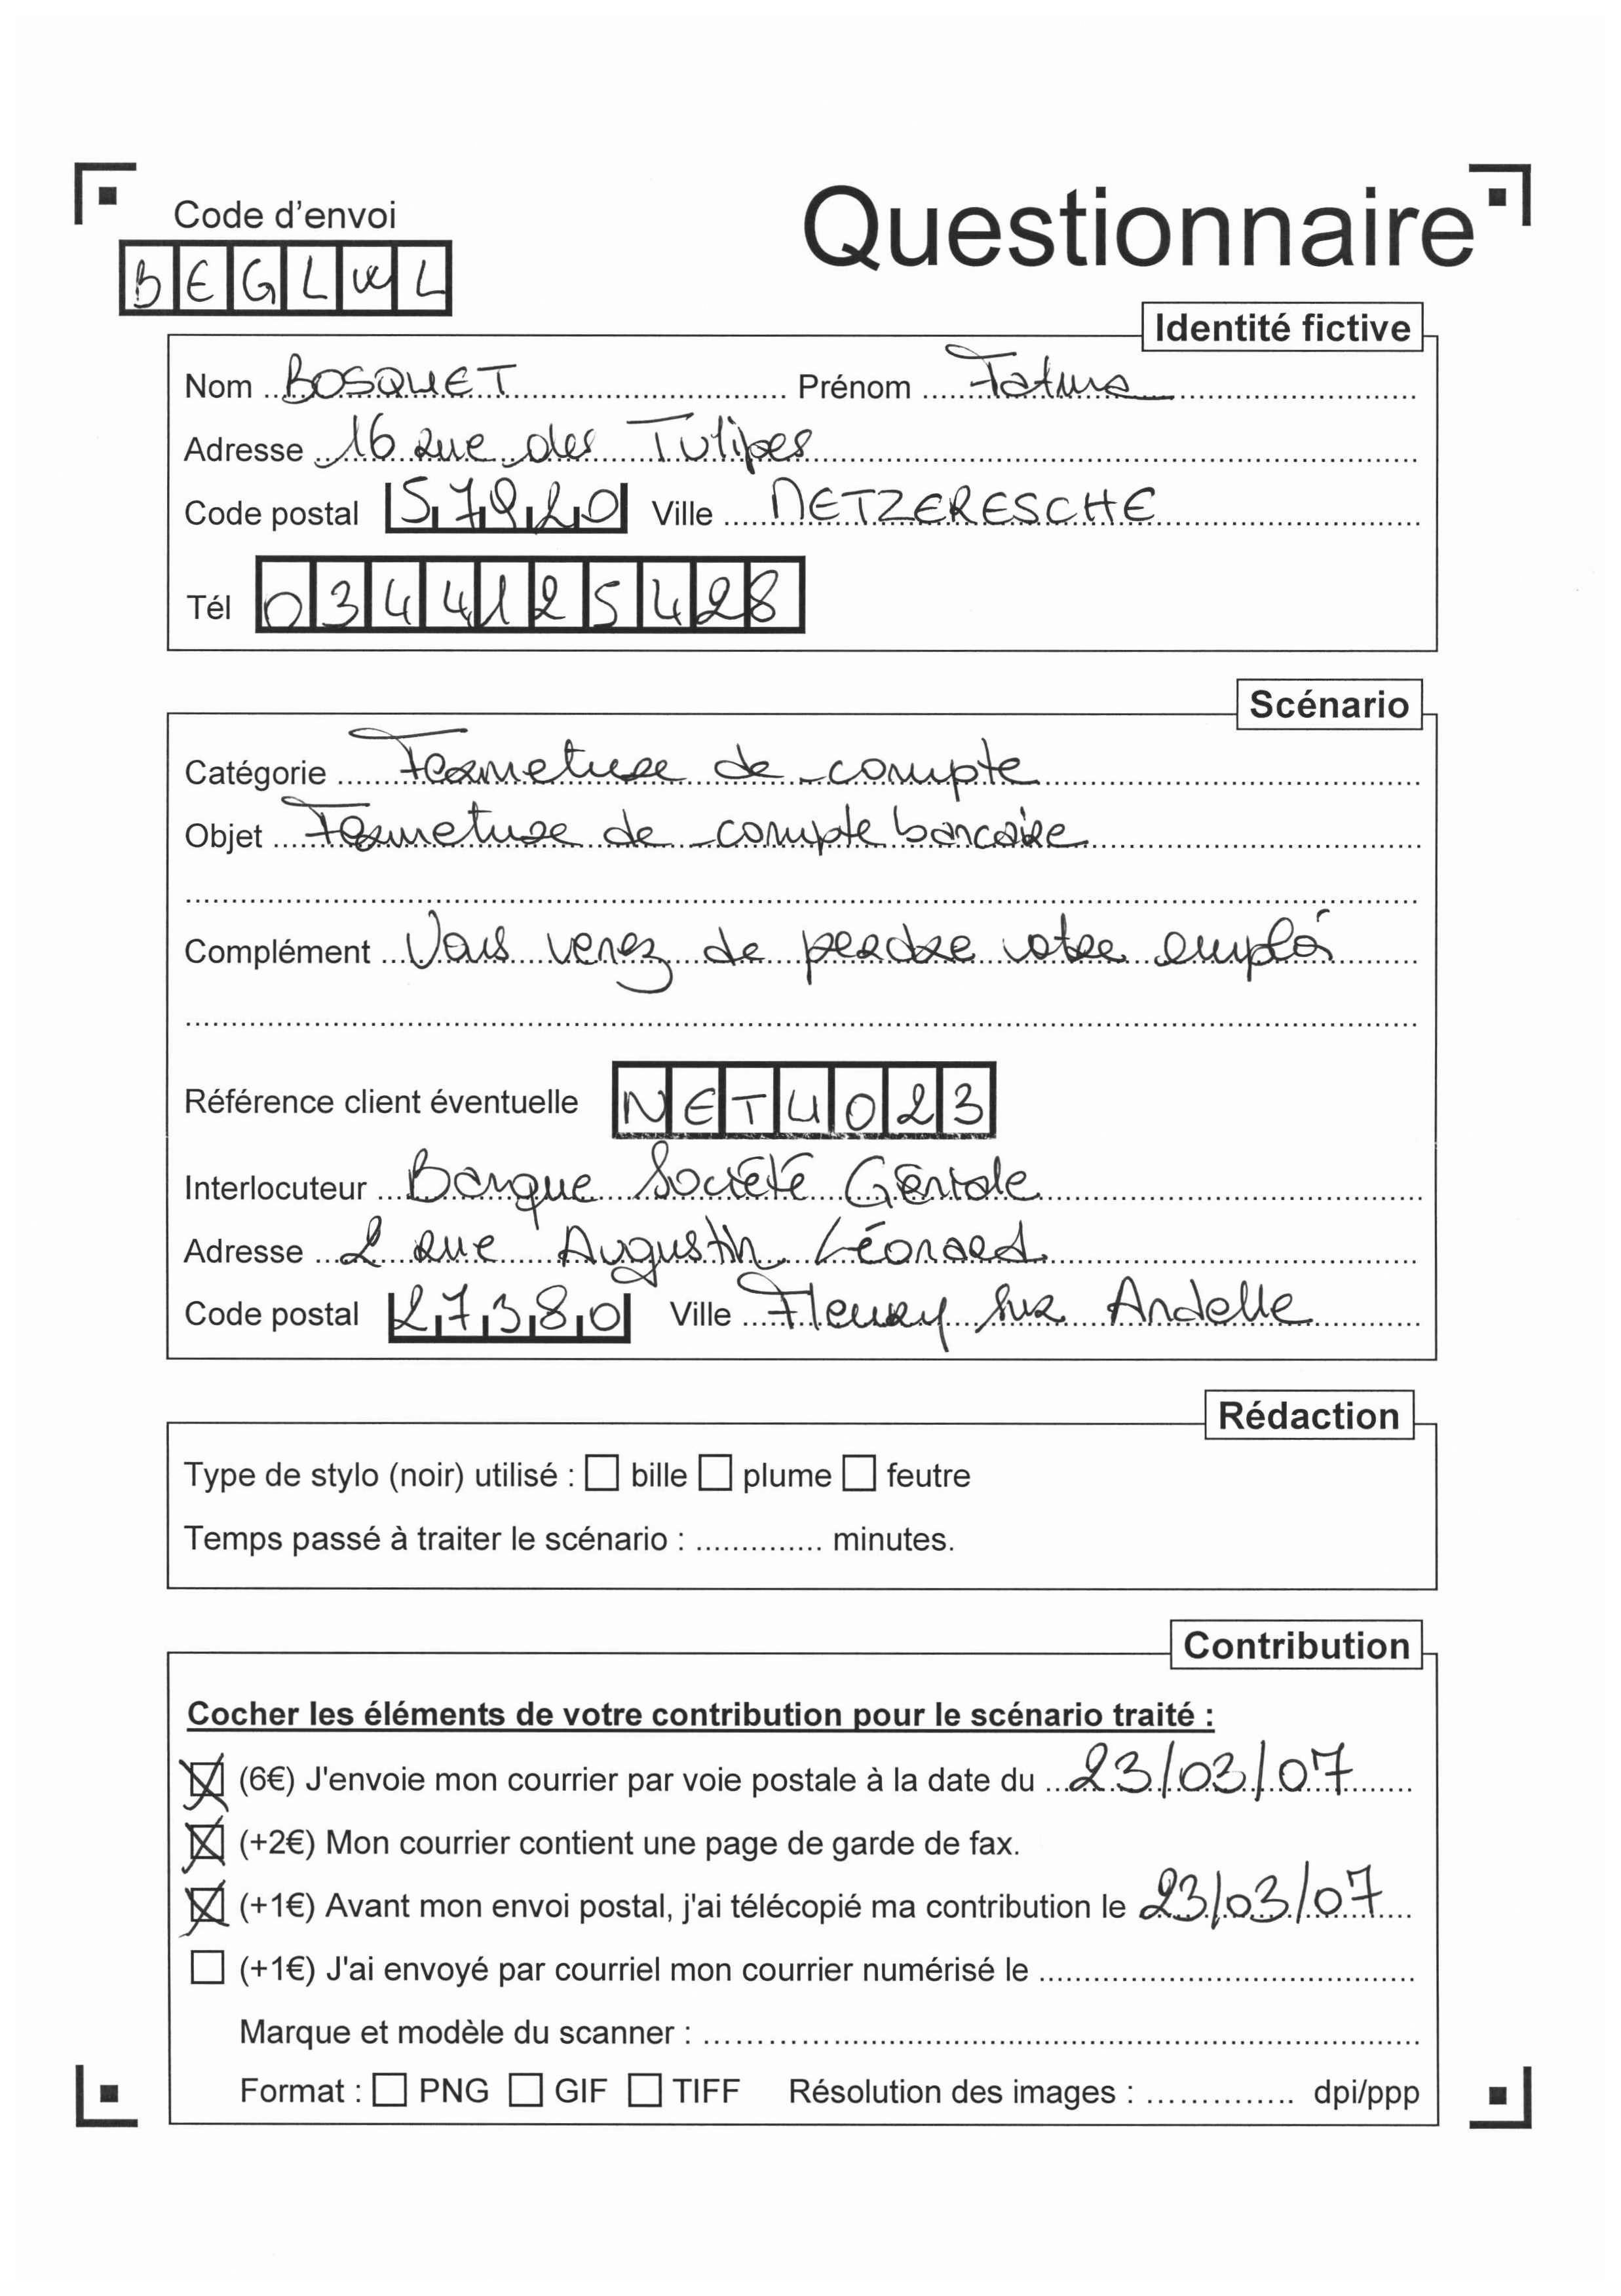 Questionnaire
Code d'envoi
BEGLWL
Identité fictive
Nom BOSQUET Prénom Fatma
Adresse 16 rue des Tulipes
Code postal 57920 Ville METZERESCHE
Tél 0344125428
Scénario
Catégorie Fermeture de compte
Objet Fermeture de compte bancaire
Complément Vous venez de perdre votre emploi
Référence client éventuelle NETU023
Interlocuteur Banque Société Géniale
Adresse 2 rue Augustin Léonard
Code postal 27380 Ville Fleury sur Andelle
Rédaction
Type de stylo (noir) utilisé : bille plume feutre
Temps passé à traiter le scénario : .............. minutes.
Contribution
Cocher les éléments de votre contribution pour le scénario traité :
(6€) J'envoie mon courrier par voie postale à la date du 23/03/07
(+2€) Mon courrier contient une page de garde de fax.
(+1€) Avant mon envoi postal, j'ai télécopié ma contribution le 23/03/07
(+1€) J'ai envoyé par courriel mon courrier numérisé le
Marque et modèle du scanner :
Format : PNG GIF TIFF Résolution des images : .............. dpi/ppp